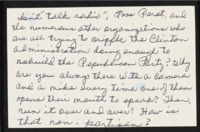 Isn't "talk radio", Ross Perot, and
the numerous other organizations who
are all trying to cripple the Clinton
administration doing enough to
rebuild the Republican Party? Why
are you always there with a camera
and a mike every time one
opens their mouth to speak? Then,
run it over and over? How is
that non-partisan?